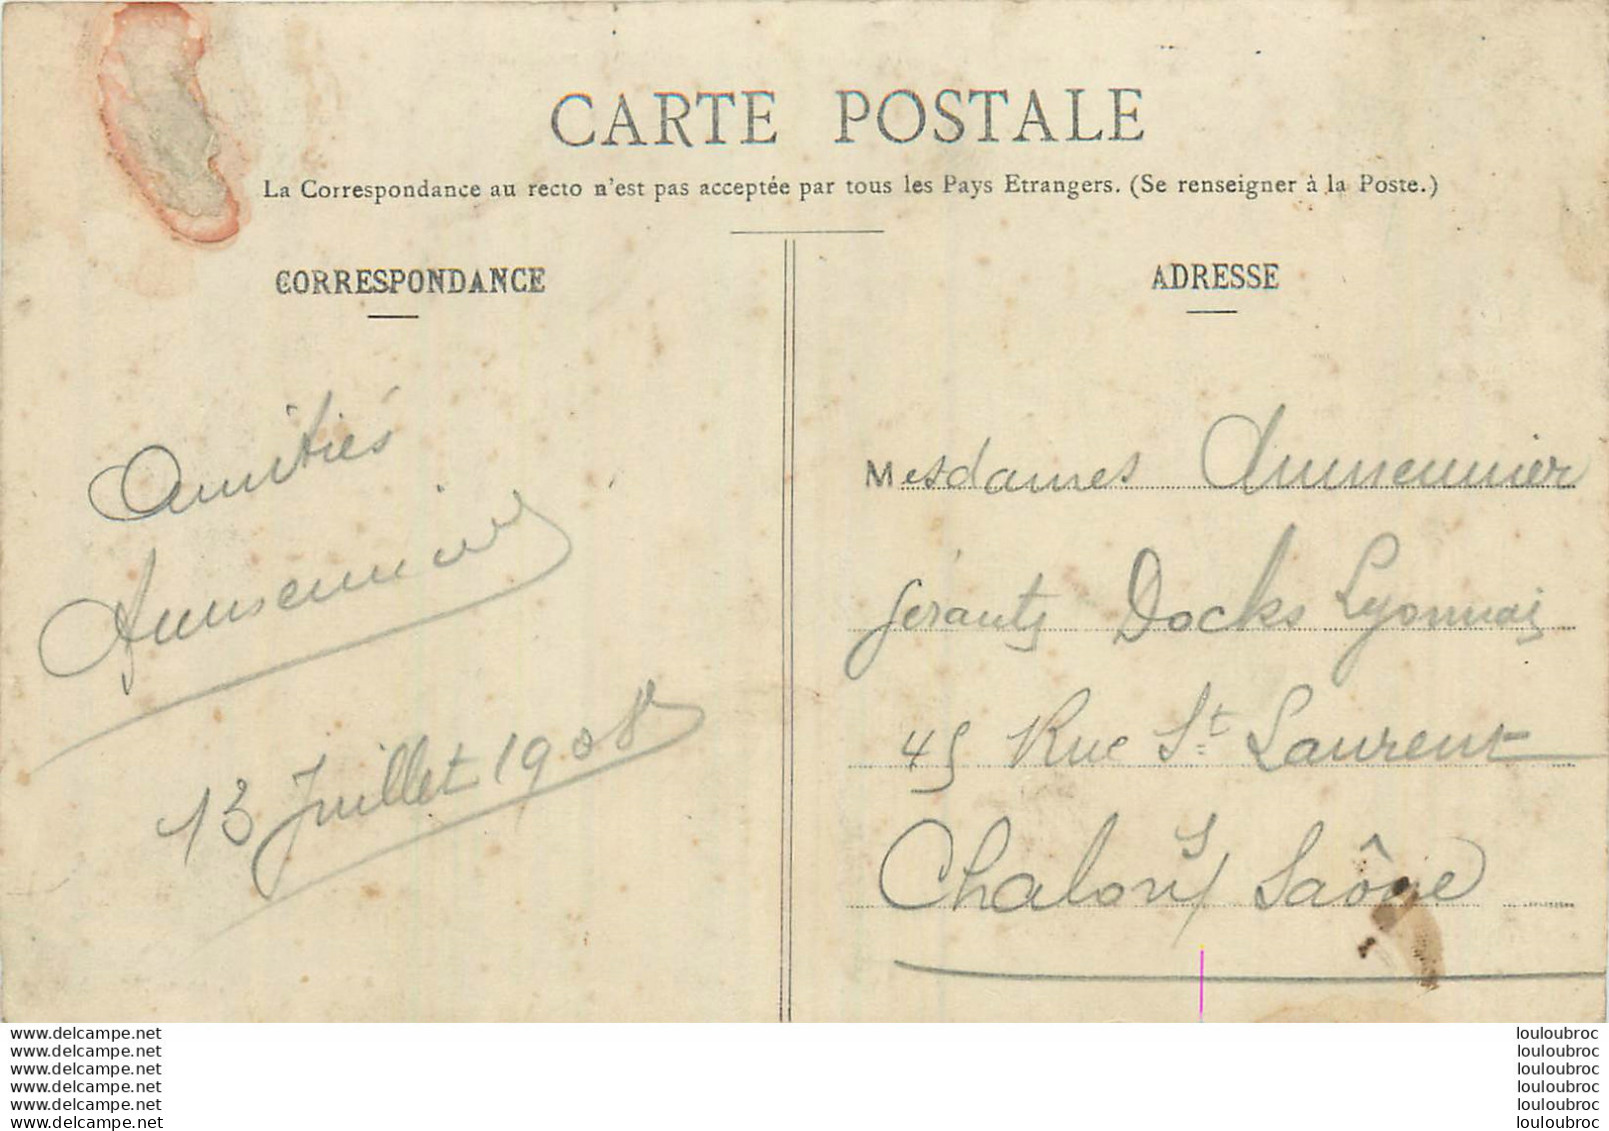 CARTE POSTALE
La Correspondance au recto n'est pas acceptée par tous les Pays Etrangers. (Se renseigner à la Poste.)
CORRESPONDANCE
Amitiés
13 Juillet 1908
ADRESSE
Mesdames
Gérants Docks Lyonnais
45 Rue St Laurent
Chalon s/ Saône
www.delcampe.net
www.delcampe.net
www.delcampe.net
www.delcampe.net
www.delcampe.net
www.delcampe.net
louloubroc
louloubroc
louloubroc
louloubroc
louloubroc
louloubroc